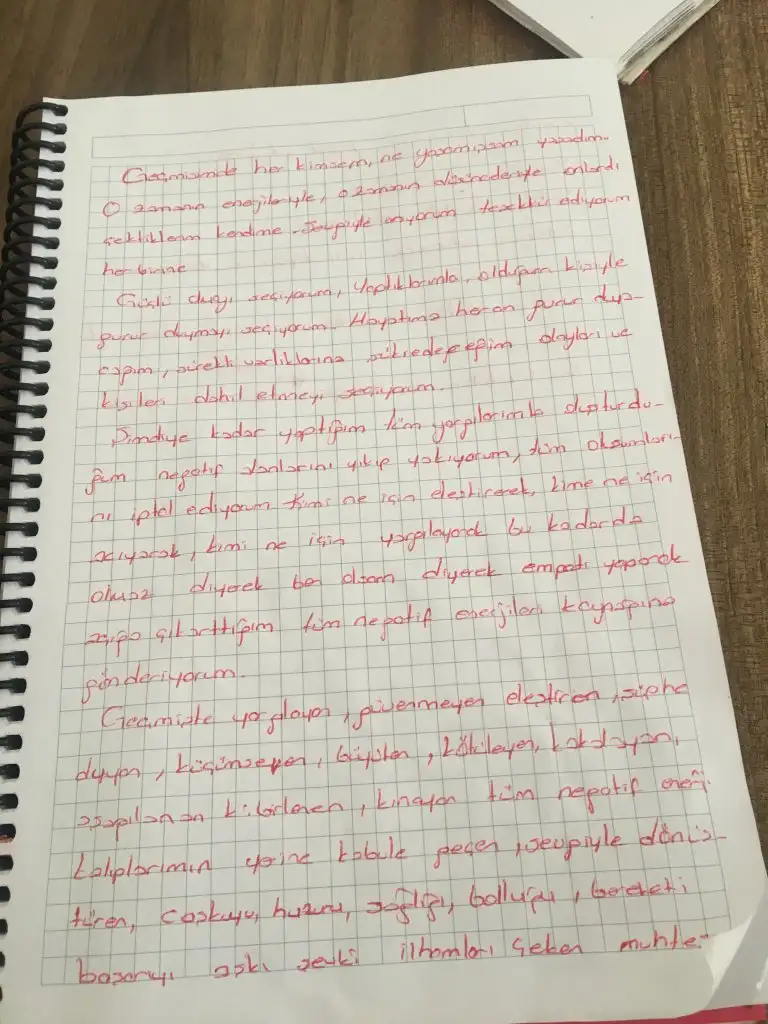 Geçmişimde her kimsem, ne yaşamışsam yaşadım.
O zamanın enerjileriyle, o zamanın onlardı
çektiklerim kendime. Sevgiyle anıyorum teşekkür ediyorum
her birine
Güçlü duyguyu seçiyorum, yaptıklarımla, olduğum kişiyle
gurur duymayı seçiyorum. Hayatıma her an gurur duya-
cağım, sürekli varlıklarına şükredeceğim olayları ve
kişileri dahil etmeyi seçiyorum.
Şimdiye kadar yaptığım tüm yargılarımla oluşturdu-
ğum negatif alanlarını yıkıp yakıyorum, tüm oluşumları-
nı iptal ediyorum kimi ne için eleştirerek, kime ne için
acıyarak, kimi ne için yargılayarak bu kadarda
olmaz diyerek ben olsam diyerek empati yaparak
açığa çıkarttığım tüm negatif enerjileri kaynağına
gönderiyorum.
Geçmişte yargılayan, güvenmeyen eleştiren, şüphe
duyan, küçümseyen, büyüten, kötüleyen,
kibirlenen, kınayan tüm negatif enerji
kalıplarımın yerine kabule geçen, sevgiyle dönüş-
türen, coşkuyu, huzuru, sağlığı, bolluğu, bereketi
başarıyı aşkı zevki ilhamları çeken muhte-